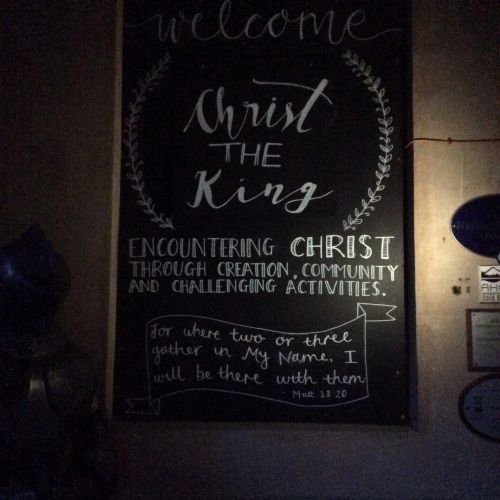 welcome
Christ
THE
King
ENCOUNTERING CHRIST
THROUGH CREATION, COMMUNITY
AND CHALLENGING ACTIVITIES.
For where two or three
gather in My Name, I
will be there with them
Matt 18 20